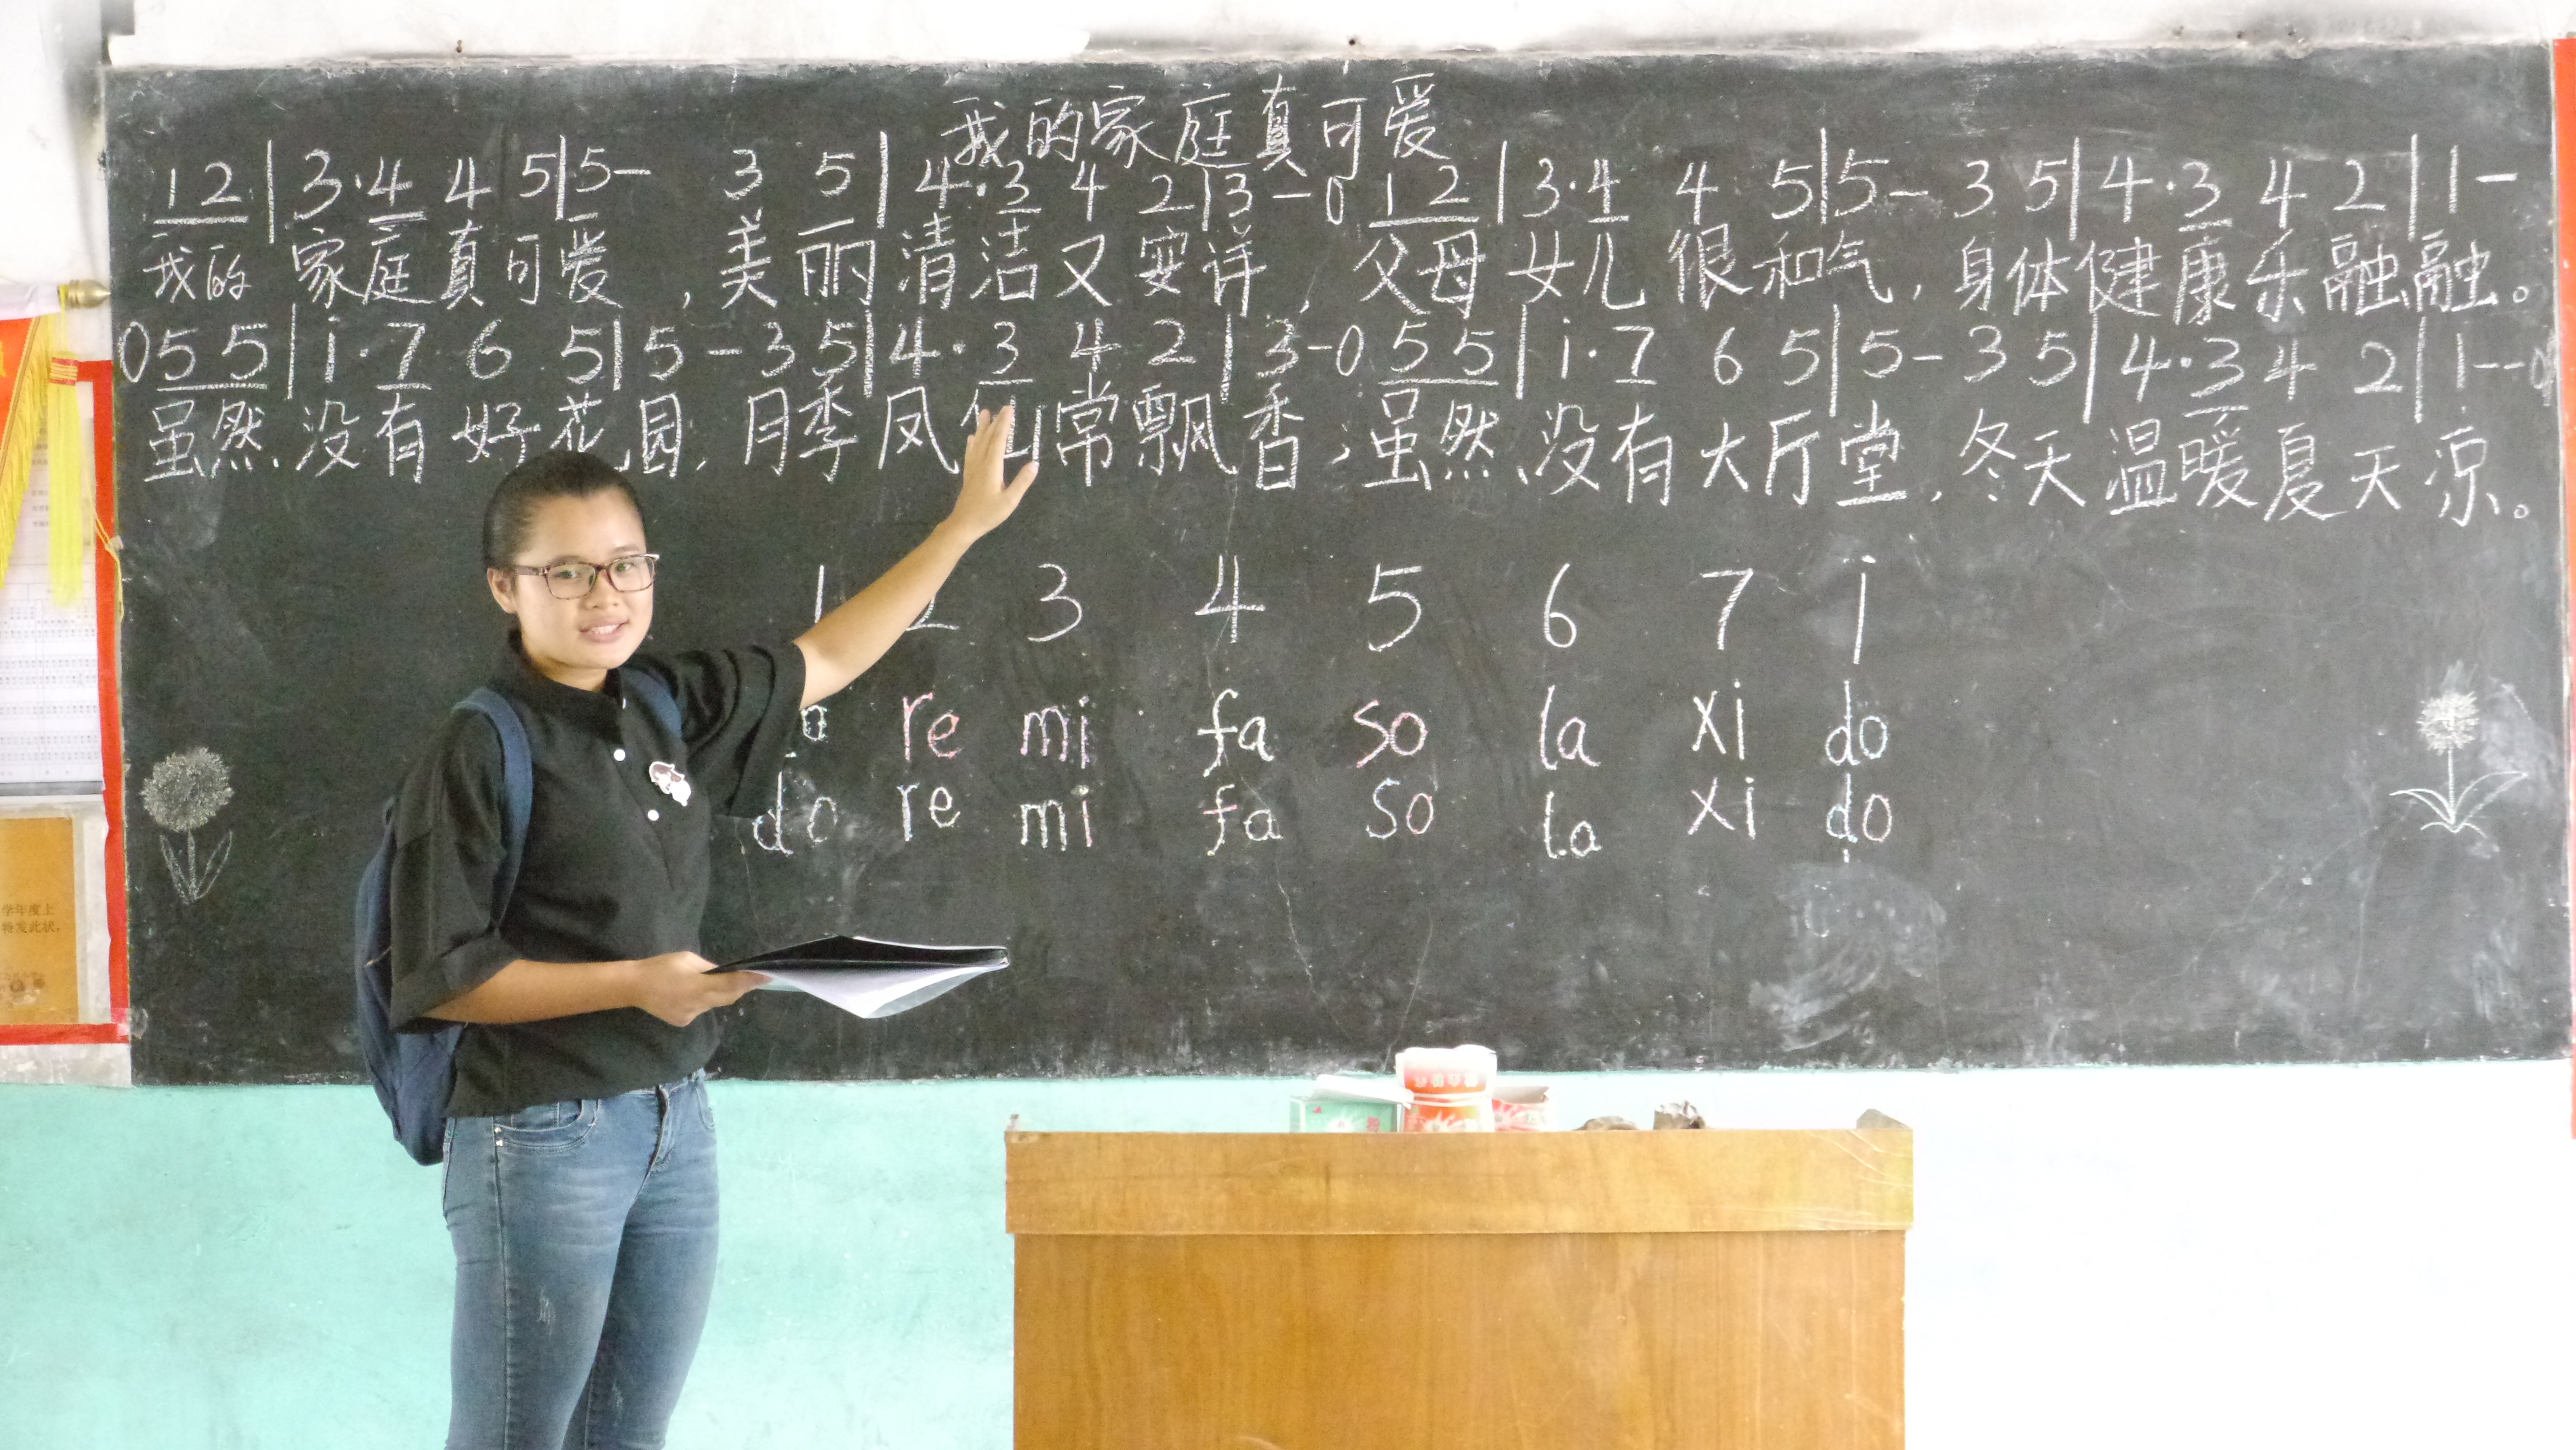 我的家庭真可爱
1 2 | 3 · 4 4 5 | 5 - 3 5 | 4 · 3 4 2 | 3 - 0 1 2 | 3 · 4 4 5 | 5 - 3 5 | 4 · 3 4 2 | 1 -
我的家庭真可爱,美丽清洁又安详,父母女儿很和气,身体健康乐融融。
0 5 5 | i · 7 6 5 | 5 - 3 5 | 4 · 3 4 2 | 3 - 0 5 5 | i · 7 6 5 | 5 - 3 5 | 4 · 3 4 2 | 1 - - 0
虽然没有好花园,月季凤仙常飘香;虽然没有大厅堂,冬天温暖夏天凉。
1 2 3 4 5 6 7 i
re mi fa so la xi do
do re mi fa so la xi do
学年度上
特发此状,